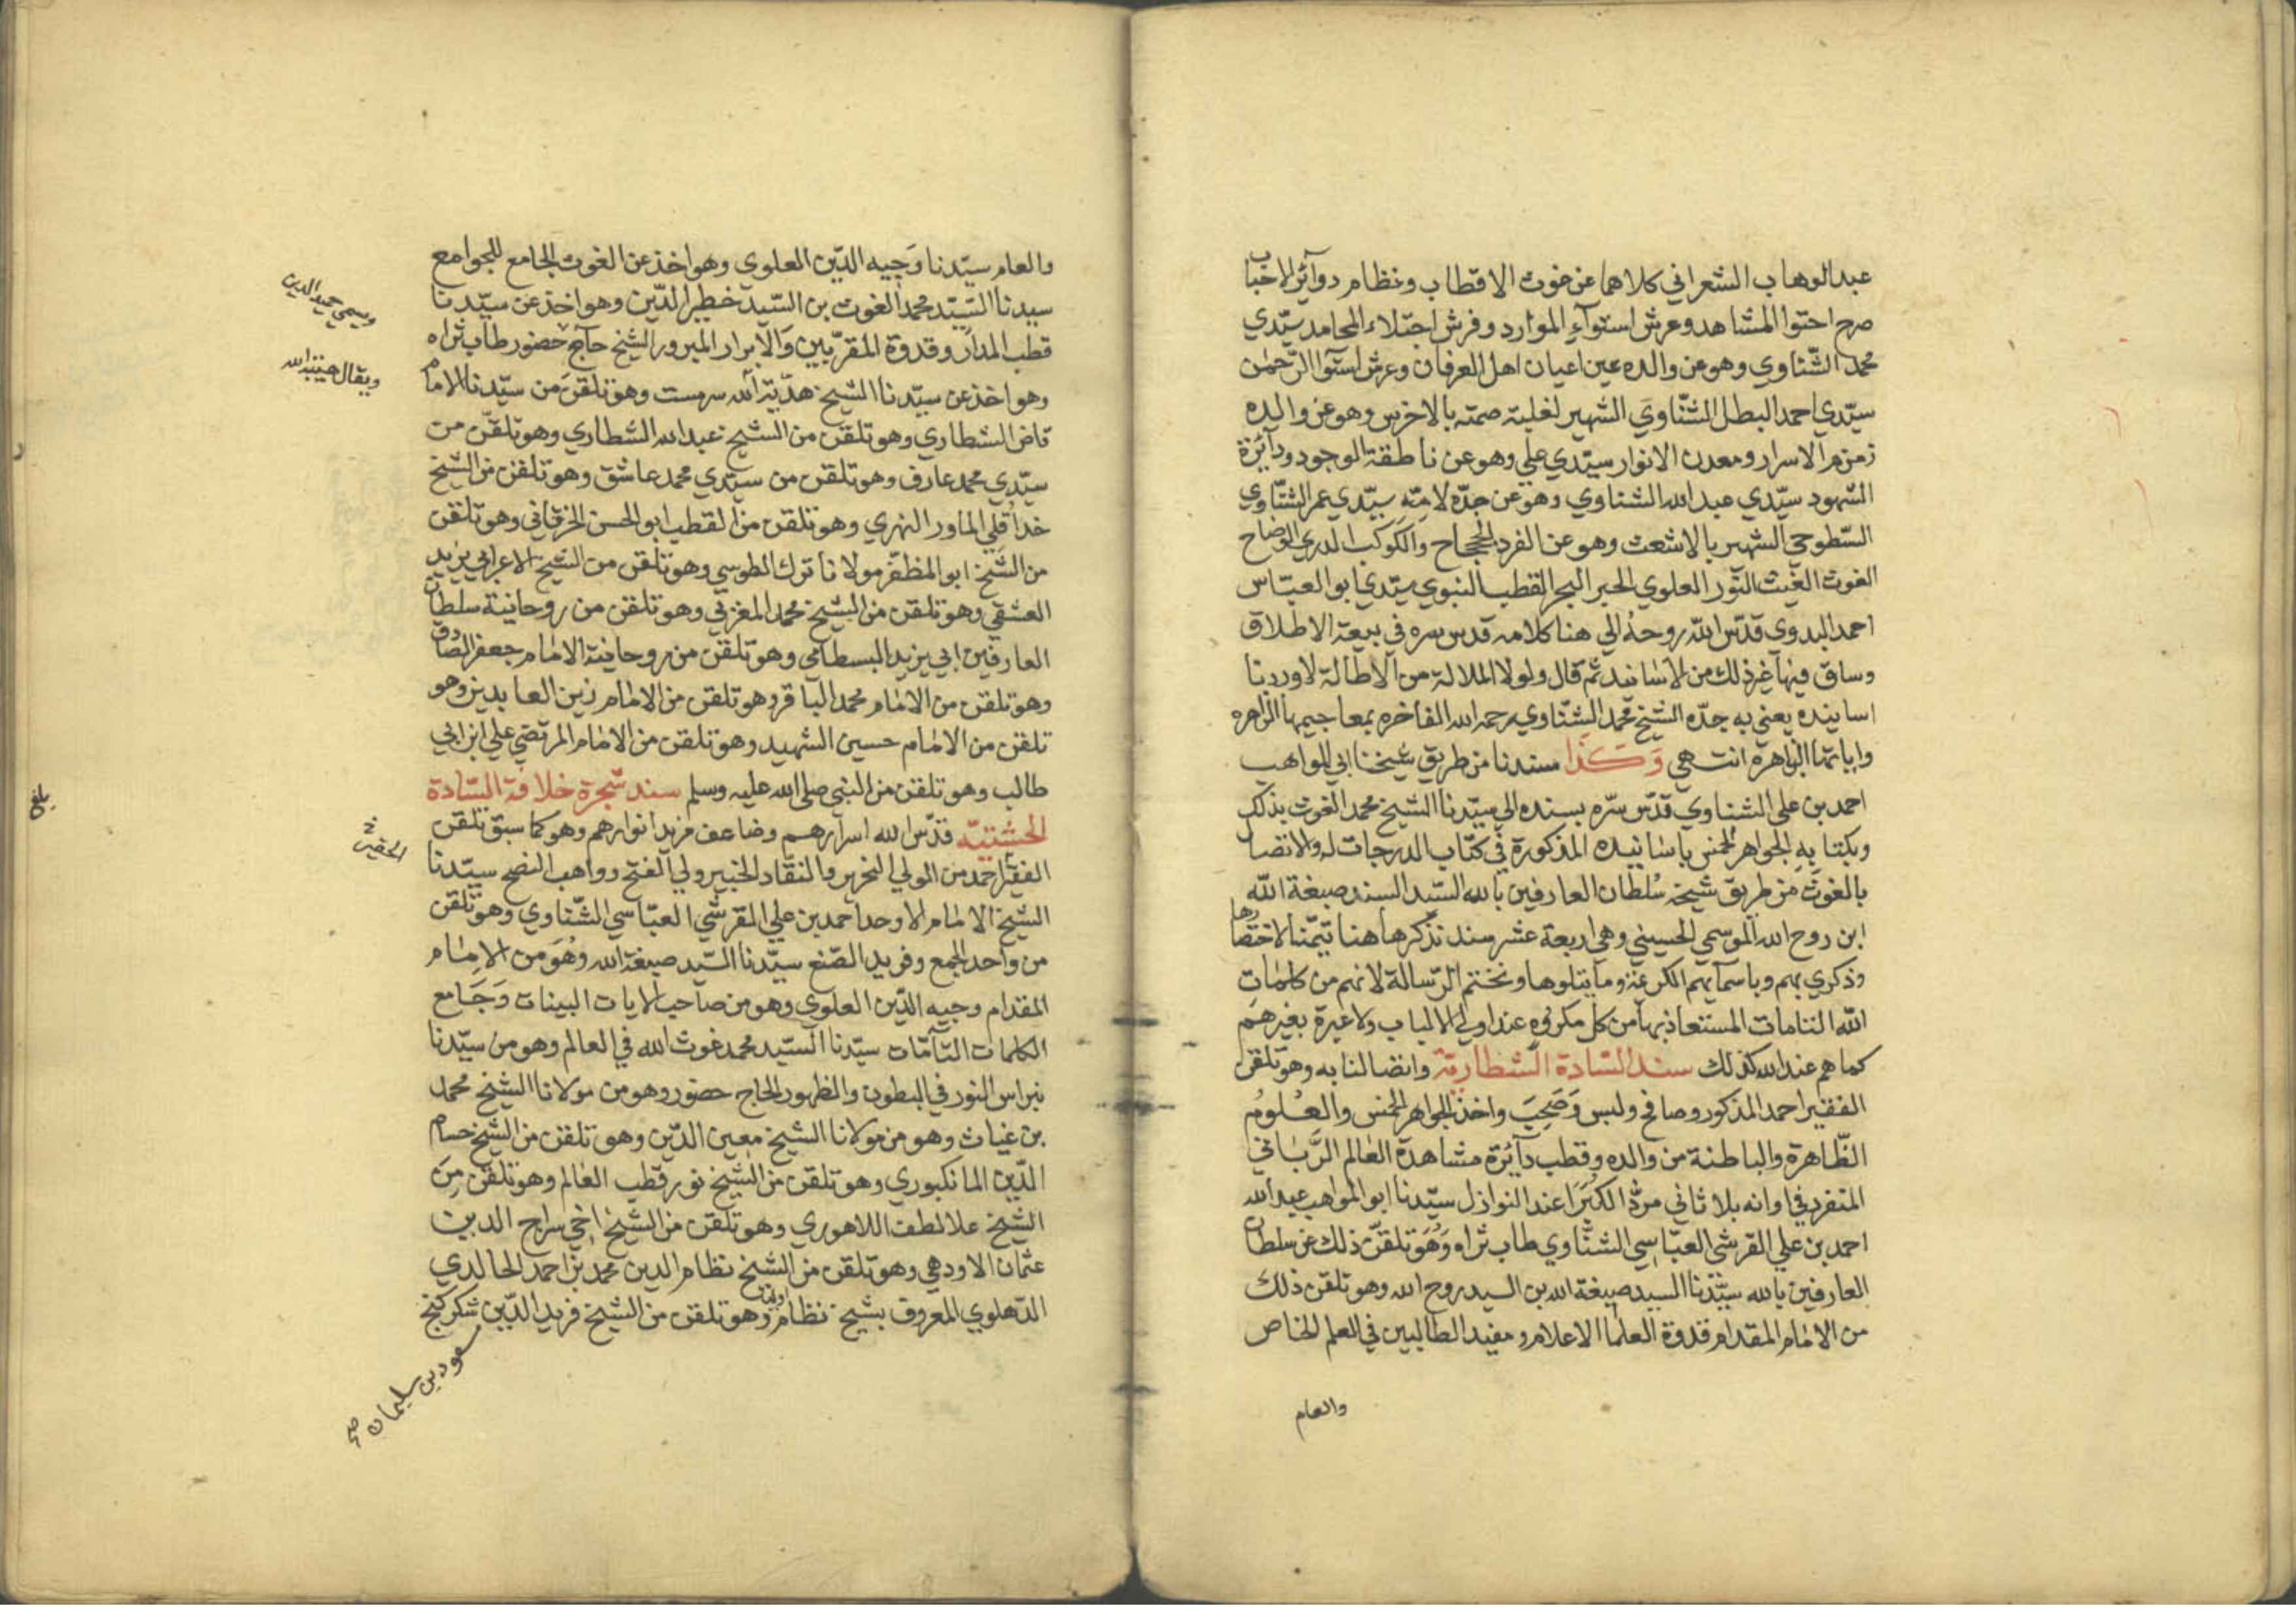 عبد الوهاب الشعراني كلاهما عن غوث الاقطاب ونظام دوآئر الاخباب
صرح احتوا المشاهد وعرش استوآء الموارد وفرش اجتلاء المحامد سيّدي
محمد الشّنّاوي وهو عن والده عين اعيان اهل العرفان وعرش استوآ الرّحمٰن
سيّدي احمد البطل الشّنّاوي الشهير لغلبة صمته بالاخرس وهو عن والده
زمزم الاسرار ومعدن الانوار سيّدي علي وهو عن ناطقة الوجود ودآئرة
الشهود سيّدي عبد الله الشناوي وهو عن جدّه لامّه سيّدي عمر الشنّاوي
السّطوحي الشهير بالاشعث وهو عن الفرد الجحجاح والكوكب الدري الوضاح
الغوث الغيث النّور العلوي الحبر البحر القطب النبوي سيّدي ابو العبّاس
احمد البدوي قدّس الله روحهُ الي هنا كلامه قدس سره في بيعة الاطلاق
وساق فيها غير ذلك من الاسانيد ثم قال ولولا الملالة من الاطالة لاوردنا
اسانيده يعني به جدّه الشيخ محمد الشنّاوي رحمه الله الفاخره بمعاجيمها الزاهره
واياتها الباهرة انتهي وَكَذا سندنا من طريق شيخنا ابي المواهب
احمد بن علي الشناوي قدّس سرّه بسنده الي سيّدنا الشيخ محمد الغوث بذلك
وبكتابه الجواهر الخمس باسانيده المذكورة في كتاب الدرجات له والاتصال
بالغوث من طريق شيخه سُلطان العارفين بالله السّيد السند صبغة الله
ابن روح الله الموسمي الحسيني وهي اربعة عشر سند نذكرها هنا تيمّنا لاختصارها
وذكري بهم وباسمآيهم الكر عنه وما يتلوها ونختتم الرّسالة لانهم من كلمات
الله التامات المستعاذ بها من كل مكروه عند اولي الالباب ولا عبرة بغيرهم
كما هم عند الله كذلك سند السّادة الشّطارية واتصالنا به وهو تلقن
الفقير احمد المذكور وصافح ولبس وَصَحِبَ واخذ الجواهر الخمس والعلوم
الظّاهرة والباطنة من والده وقطب دآئرة مشاهدة العالم الرَّبّاني
المتفرد في اوانه بلا ثاني مردّ الكُبَرَا عند النوازل سيّدنا ابو المواهب عبد الله
احمد بن علي القرشي العبّاسي الشنّاوي طاب ثراه وَهُوَ تلقّن ذلك عن سلطان
العارفين بالله سيّدنا السيد صبغة الله بن السيد روح الله وهو تلقن ذلك
من الامام المقدام قدوة العلما الاعلام ومفيد الطالبين في العلم الخاص
والعام
والعام سيّدنا وَجيه الدّين العلوي وهو اخذ عن الغوث الجامع للجوامع
سيدنا السّيّد محمد الغوث بن السّيد خطير الدّين وهو اخذ عن سيّدنا
ويسمي حميد الدين
قطب المدار وقدوة المقرّبين وَالابرار المبرور الشيخ حآج حضور طاب ثراه
وهو اخذ عن سيّدنا الشيخ هديّة الله سرمست وهو تلقن من سيّدنا الامام
ويقال هيبة الله
قاض الشطاري وهو تلقن من الشيخ عبد الله الشطاري وهو تلقّن من
سيّدي محمد عارف وهو تلقن من سيّدي محمد عاشق وهو تلقن من الشيخ
خداقلي الماور النهري وهو تلقن من القطب ابو الحسن الخرقاني وهو تلقن
من الشيخ ابو المظفر مولانا ترك الطوسي وهو تلقن من الشيخ الاعرابي يزيد
العشقي وهو تلقن من الشيخ محمد المغربي وهو تلقن من روحانية سلطان
العارفين ابي يزيد البسطامي وهو تلقن من روحانية الامام جعفر الصّادق
وهو تلقن من الامام محمد الباقر وهو تلقن من الامام زين العابدين وهو
تلقن من الامام حسين الشهيد وهو تلقن من الامام المرتضي علي ابن ابي
طالب وهو تلقن من النبي صلى الله عليه وسلم سند شجرة خلافة السّادة
بلغ
الحشتيّه قدّس الله اسرارهم وضاعف مزيد انوارهم وهو كما سبق تلقن
الحقير خ
الفقير احمد من المولي النحرير والنقاد الخبير ولي الفتح وواهب النصح سيّدنا
الشيخ الامام الاوحد احمد بن علي القرشي العبّاسي الشّنّاوي وهو تلقن
من واحد الجمع وفريد الصّنع سيّدنا السّيد صبغة الله وهُوَ من الامام
المقدام وجيه الدّين العلوي وهو من صاحب الايات البينات وَجَامع
الكلمات التآمّات سيّدنا السّيّد محمد غوث الله في العالم وهو من سيّدنا
نبراس النور في البطون والظهور الحاج حضور وهو من مولانا الشيخ محمد
بن غياث وهو من مولانا الشيخ معين الدّين وهو تلقن من الشيخ حسام
الدّين المانكبوري وهو تلقن من الشيخ نور قطب العالم وهو تلقن مِنَ
الشيخ علا لطف اللاهوري وهو تلقن من الشيخ اخي سراج الدين
عثمان الاودهي وهو تلقن من الشيخ نظام الدين محمد بن احمد الخالدي
الدّهلوي المعروف بشيخ نظام اوليا وهو تلقن من الشيخ فريد الدّين شكر كنج
مسعود بن سليمان صح